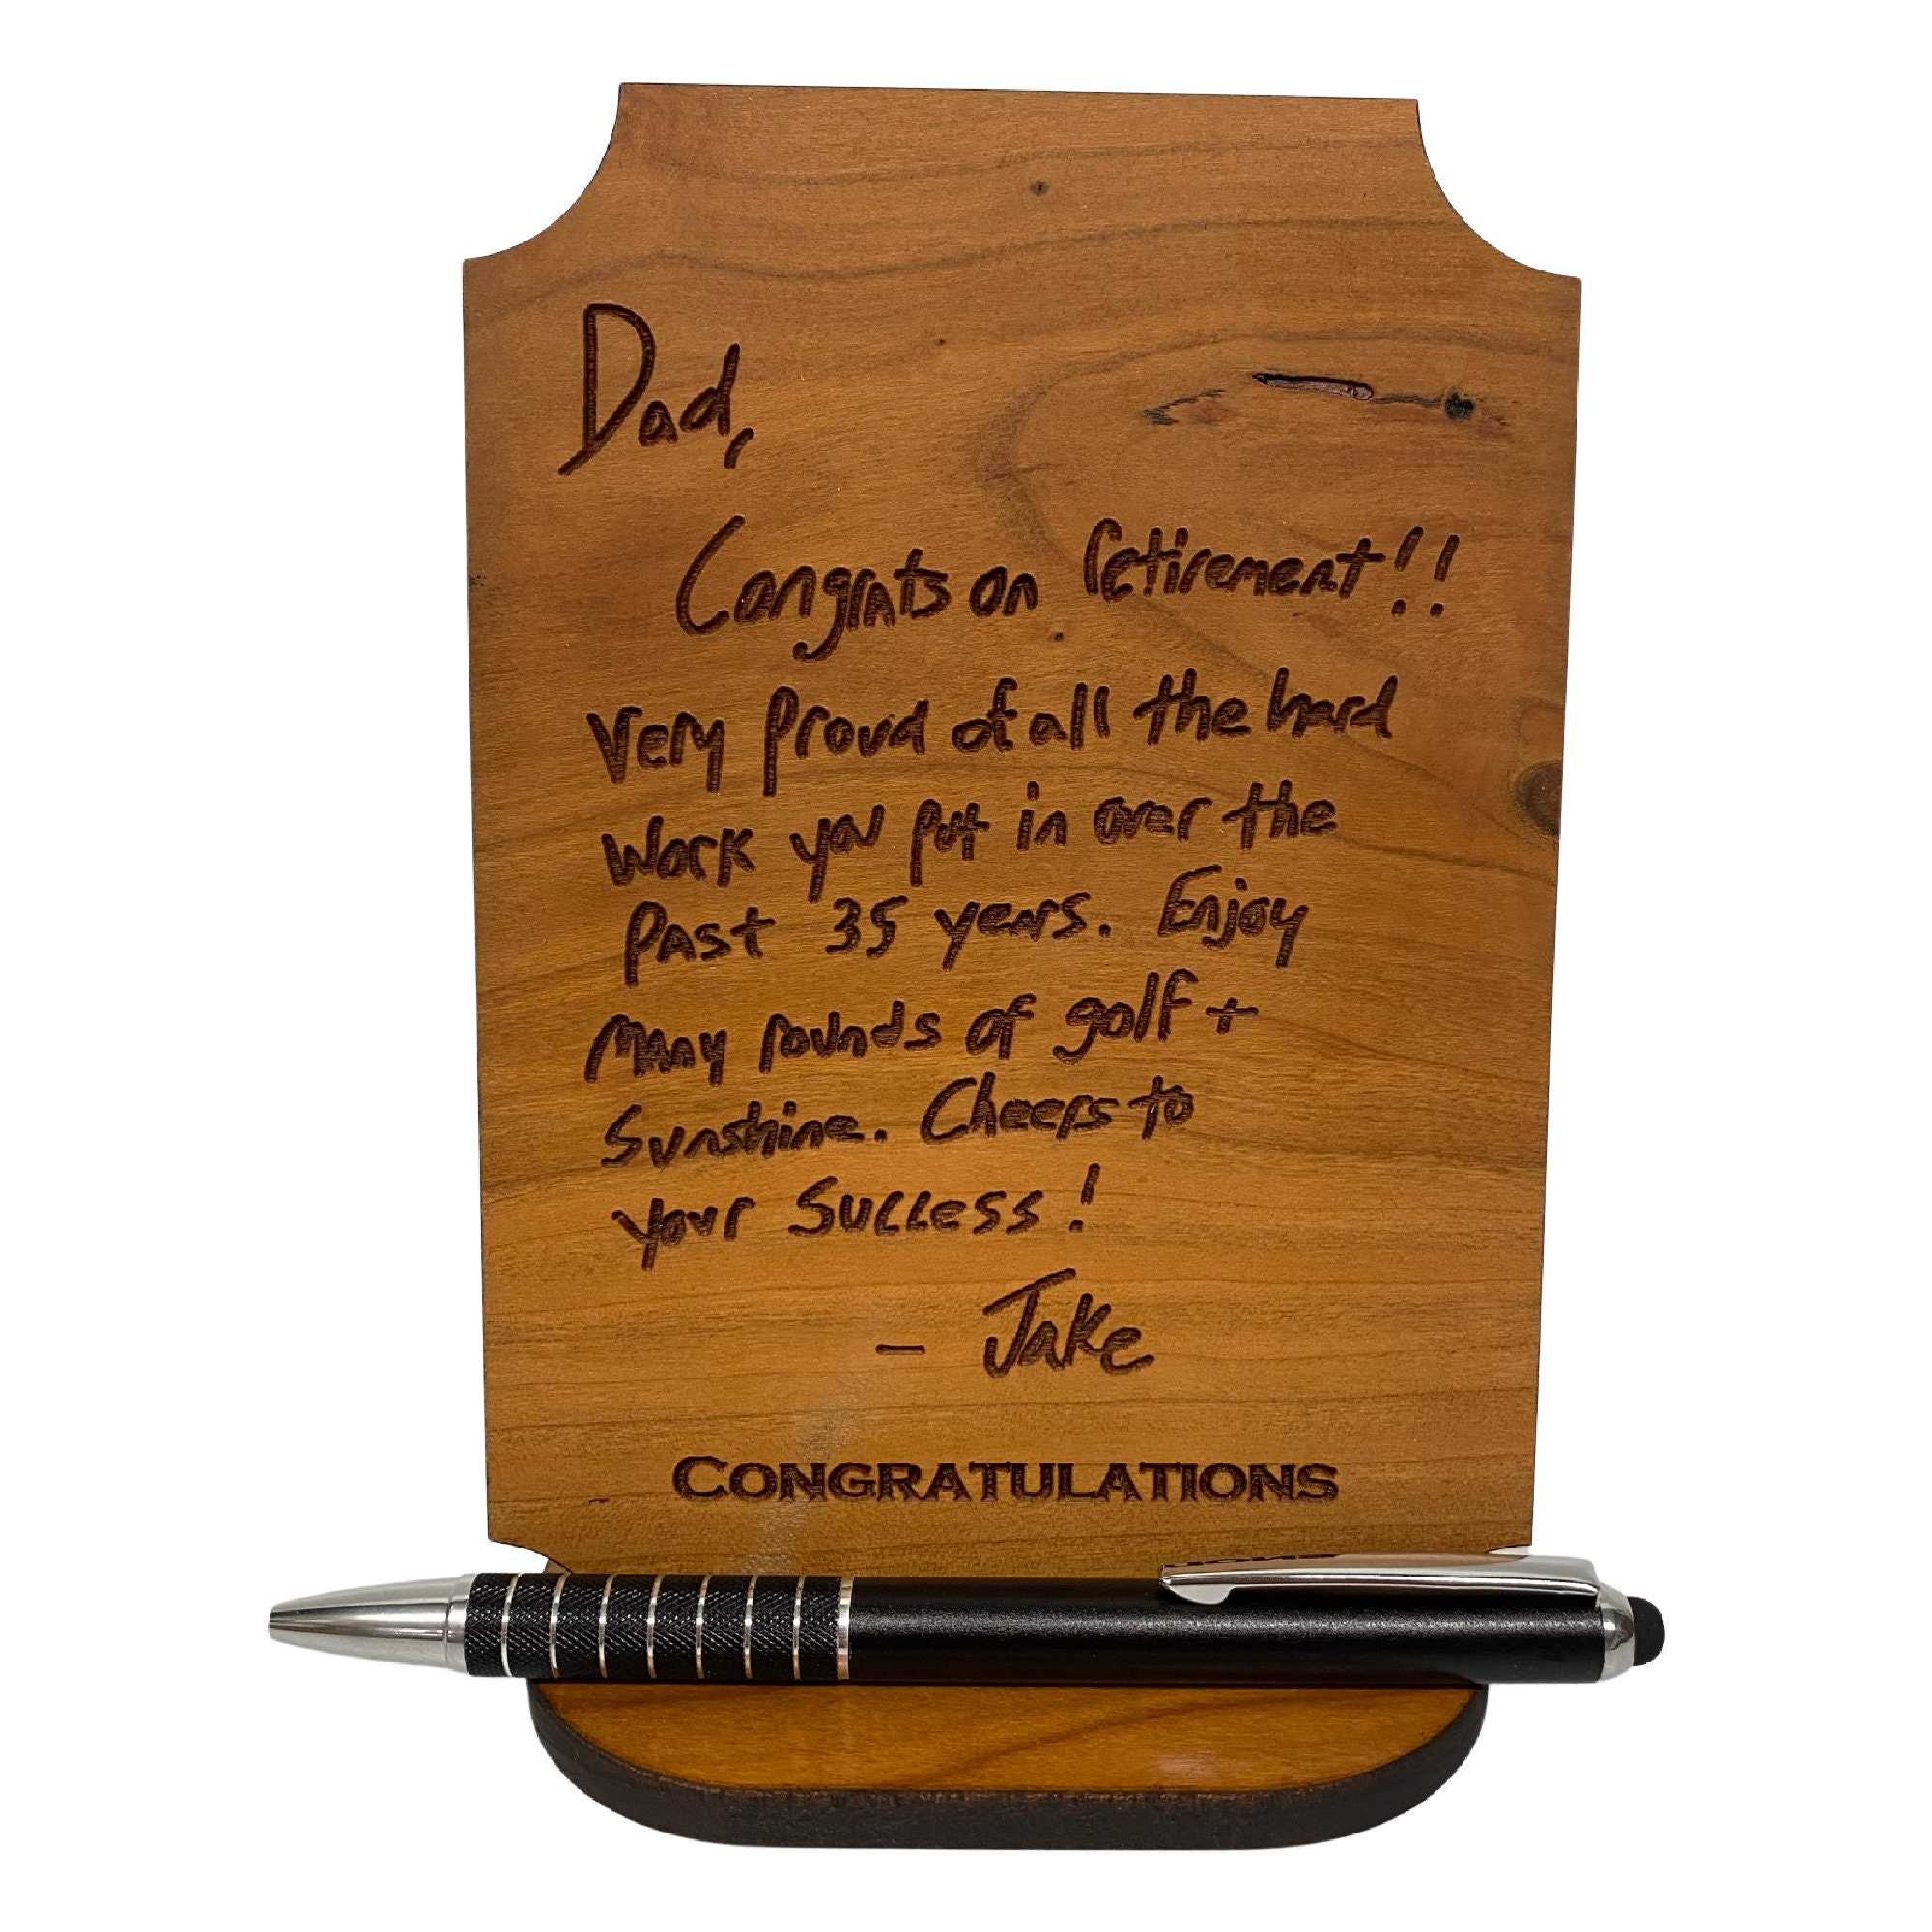 Dad,
Congrats on retirement!!
Very Proud of all the hard
Work you put in over the
Past 35 years. Enjoy
Many rounds of golf +
Sunshine. Cheers to
your Success!
- Jake
CONGRATULATIONS